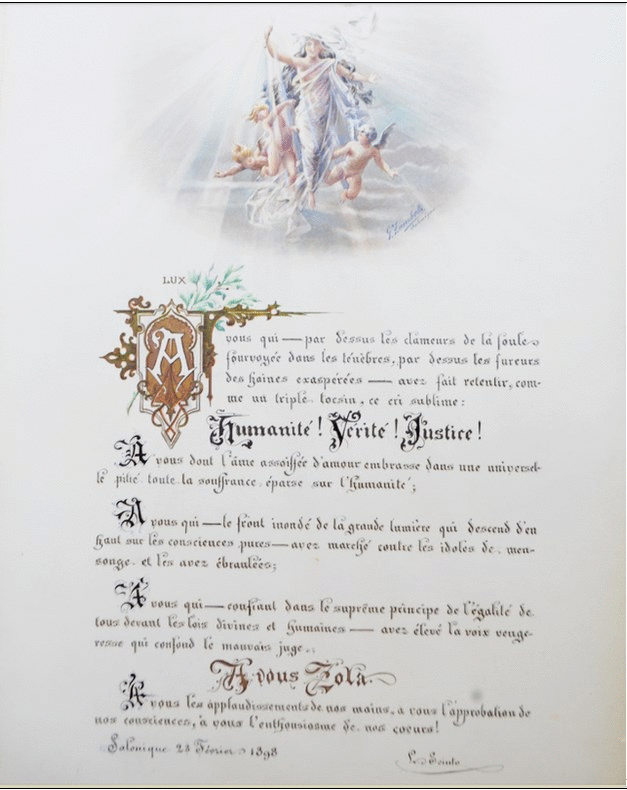 LUX
A vous qui — par dessus les clameurs de la foule
fourvoyée dans les ténèbres, par dessus les fureurs
des haines exaspérées — avez fait retentir, com-
me un triple tocsin, ce cri sublime:
Humanité! Vérité! Justice!
A vous dont l'âme assoiffée d'amour embrasse dans une universel-
le pitié toute la souffrance éparse sur l'humanité;
A vous qui — le front inondé de la grande lumière qui descend d'en
haut sur les consciences pures — avez marché contre les idoles de men-
songe et les avez ébranlées;
A vous qui — confiant dans le suprême principe de l'égalité de
tous devant les lois divines et humaines — avez élevé la voix venge-
resse qui confond le mauvais juge.
A vous Zola
A vous les applaudissements de nos mains, a vous l'approbation de
nos consciences, à vous l'enthousiasme de nos cœurs!
Salonique 23 Février 1898